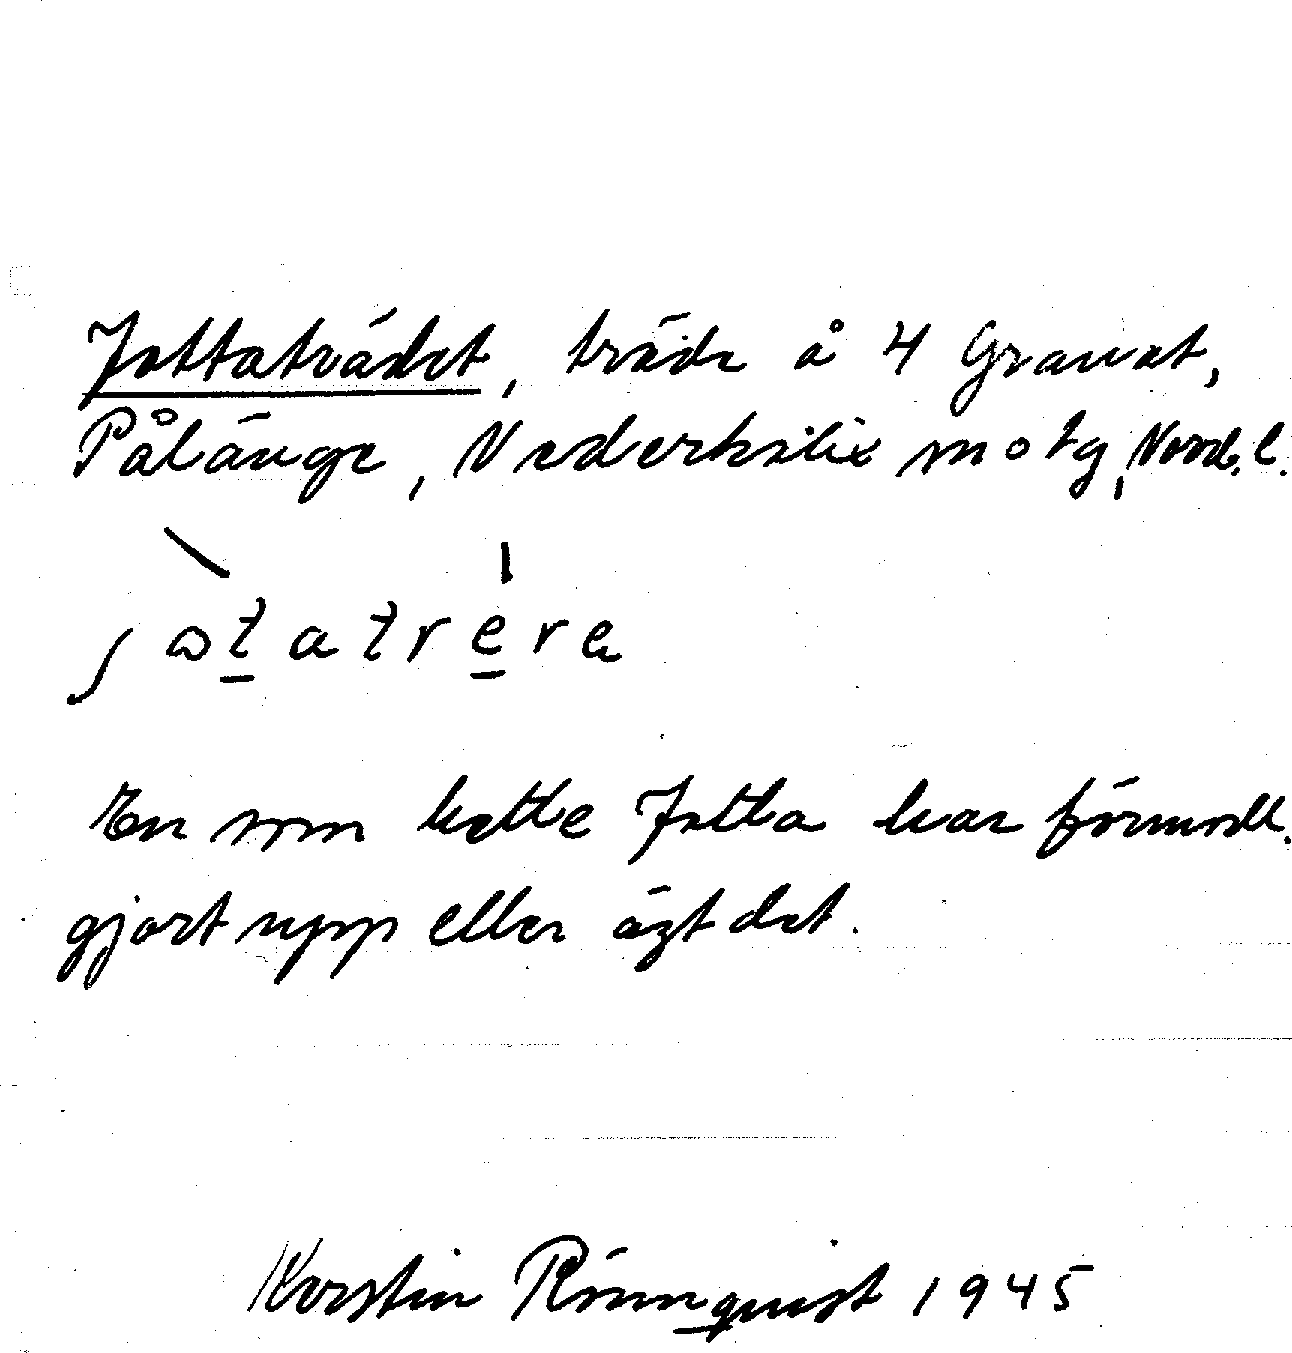 Jottaträdet, träde å 4 Granat,
Pålänge, Nederkalix sn o tg, Norrb. l.
En som hette Jotta har förmodl.
gjort upp eller ägt det.
Kerstin Rönnquist 1945